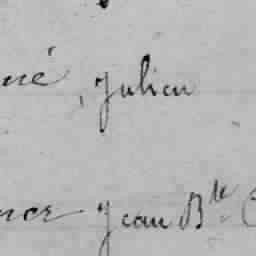 né, Julien
Jean Bte